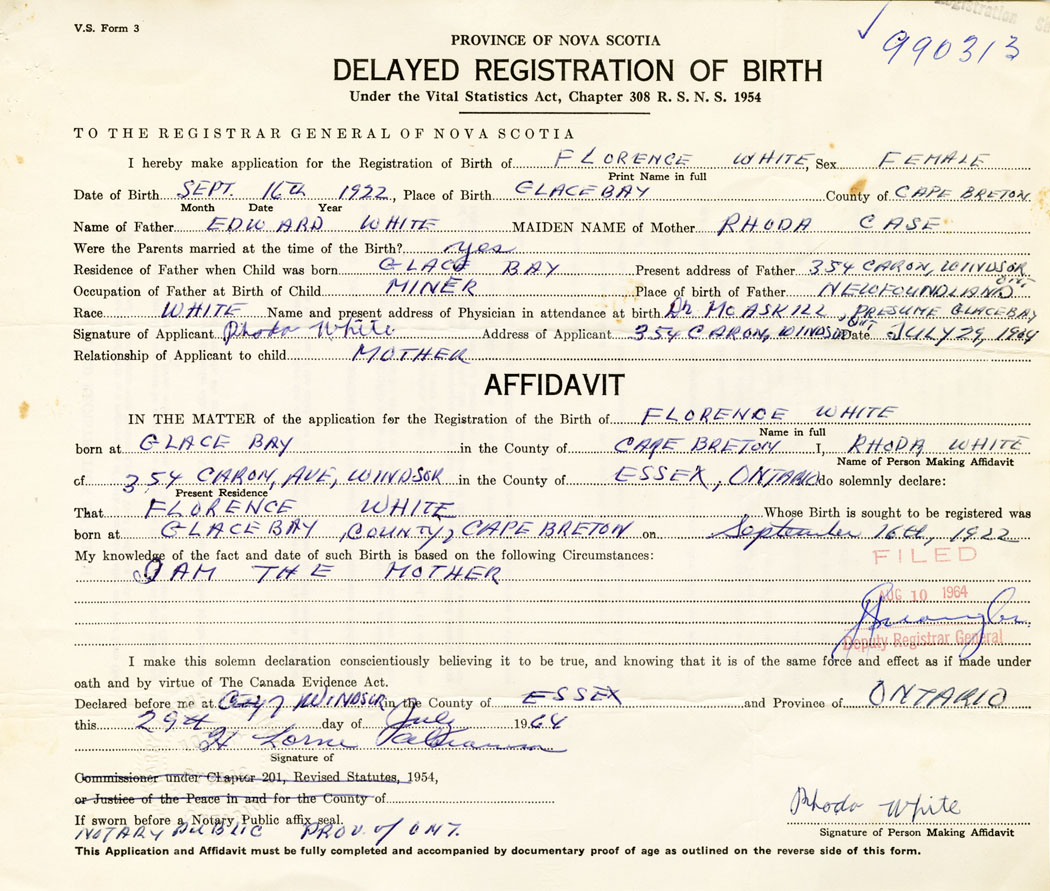 V.S. Form 3
Registration
990313
PROVINCE OF NOVA SCOTIA
DELAYED REGISTRATION OF BIRTH
Under the Vital Statistics Act, Chapter 308 R. S. N. S. 1954
TO THE REGISTRAR GENERAL OF NOVA SCOTIA
I hereby make application for the Registration of Birth of FLORENCE WHITE, Sex FEMALE
Print Name in full
Date of Birth SEPT. 16th 1922, Place of Birth GLACE BAY County of CAPE BRETON
Month Date Year
Name of Father EDWARD WHITE MAIDEN NAME of Mother RHODA CASE
Were the Parents married at the time of the Birth? yes
Residence of Father when Child was born GLACE BAY Present address of Father 354 CARON, WINDSOR Ont.
Occupation of Father at Birth of Child MINER Place of birth of Father NEWFOUNDLAND
Race WHITE Name and present address of Physician in attendance at birth Dr MCASKILL, PRESUME GLACE BAY
Signature of Applicant Rhoda White Address of Applicant 354 CARON, WINDSOR Ont. Date JULY 29, 1964
Relationship of Applicant to child MOTHER
AFFIDAVIT
IN THE MATTER of the application for the Registration of the Birth of FLORENCE WHITE
Name in full
born at GLACE BAY in the County of CAPE BRETON I, RHODA WHITE
Name of Person Making Affidavit
of 354 CARON, AVE, WINDSOR in the County of ESSEX, ONTARIO do solemnly declare:
Present Residence
That FLORENCE WHITE, Whose Birth is sought to be registered was
born at GLACE BAY, COUNTY, CAPE BRETON on September 16th, 1922
My knowledge of the fact and date of such Birth is based on the following Circumstances:
FILED
I AM THE MOTHER
AUG 10 1964
Deputy Registrar General
I make this solemn declaration conscientiously believing it to be true, and knowing that it is of the same force and effect as if made under
oath and by virtue of The Canada Evidence Act.
Declared before me at City of WINDSOR in the County of ESSEX and Province of ONTARIO
this 29th day of July 1964
H Lorne
Signature of
Commissioner under Chapter 201, Revised Statutes, 1954,
or Justice of the Peace in and for the County of
If sworn before a Notary Public affix seal.
NOTARY PUBLIC PROV. of ONT.
Rhoda White
Signature of Person Making Affidavit
This Application and Affidavit must be fully completed and accompanied by documentary proof of age as outlined on the reverse side of this form.